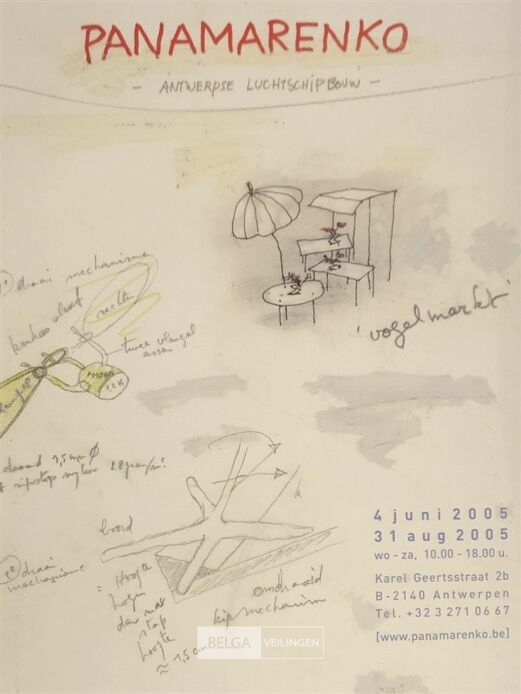 PANAMARENKO
- ANTWERPSE LUCHTSCHIPBOUW -
draai mechanisme
rechter
twee vleugel
assen
'vogelmarkt'
draad 1,5 mm Ø
ripstop nylon 28 gram/m²
boord
draai
mechanisme
= Hoogte
hoger
dan max
stap
hoogte
≈ 1,5 cm
omdraaid
kip mechanism
4 juni 2005
31 aug 2005
wo - za, 10.00 - 18.00 u.
Karel Geertsstraat 2b
B-2140 Antwerpen
Tel. +32 3 271 06 67
[www.panamarenko.be]
BELGA VEILINGEN